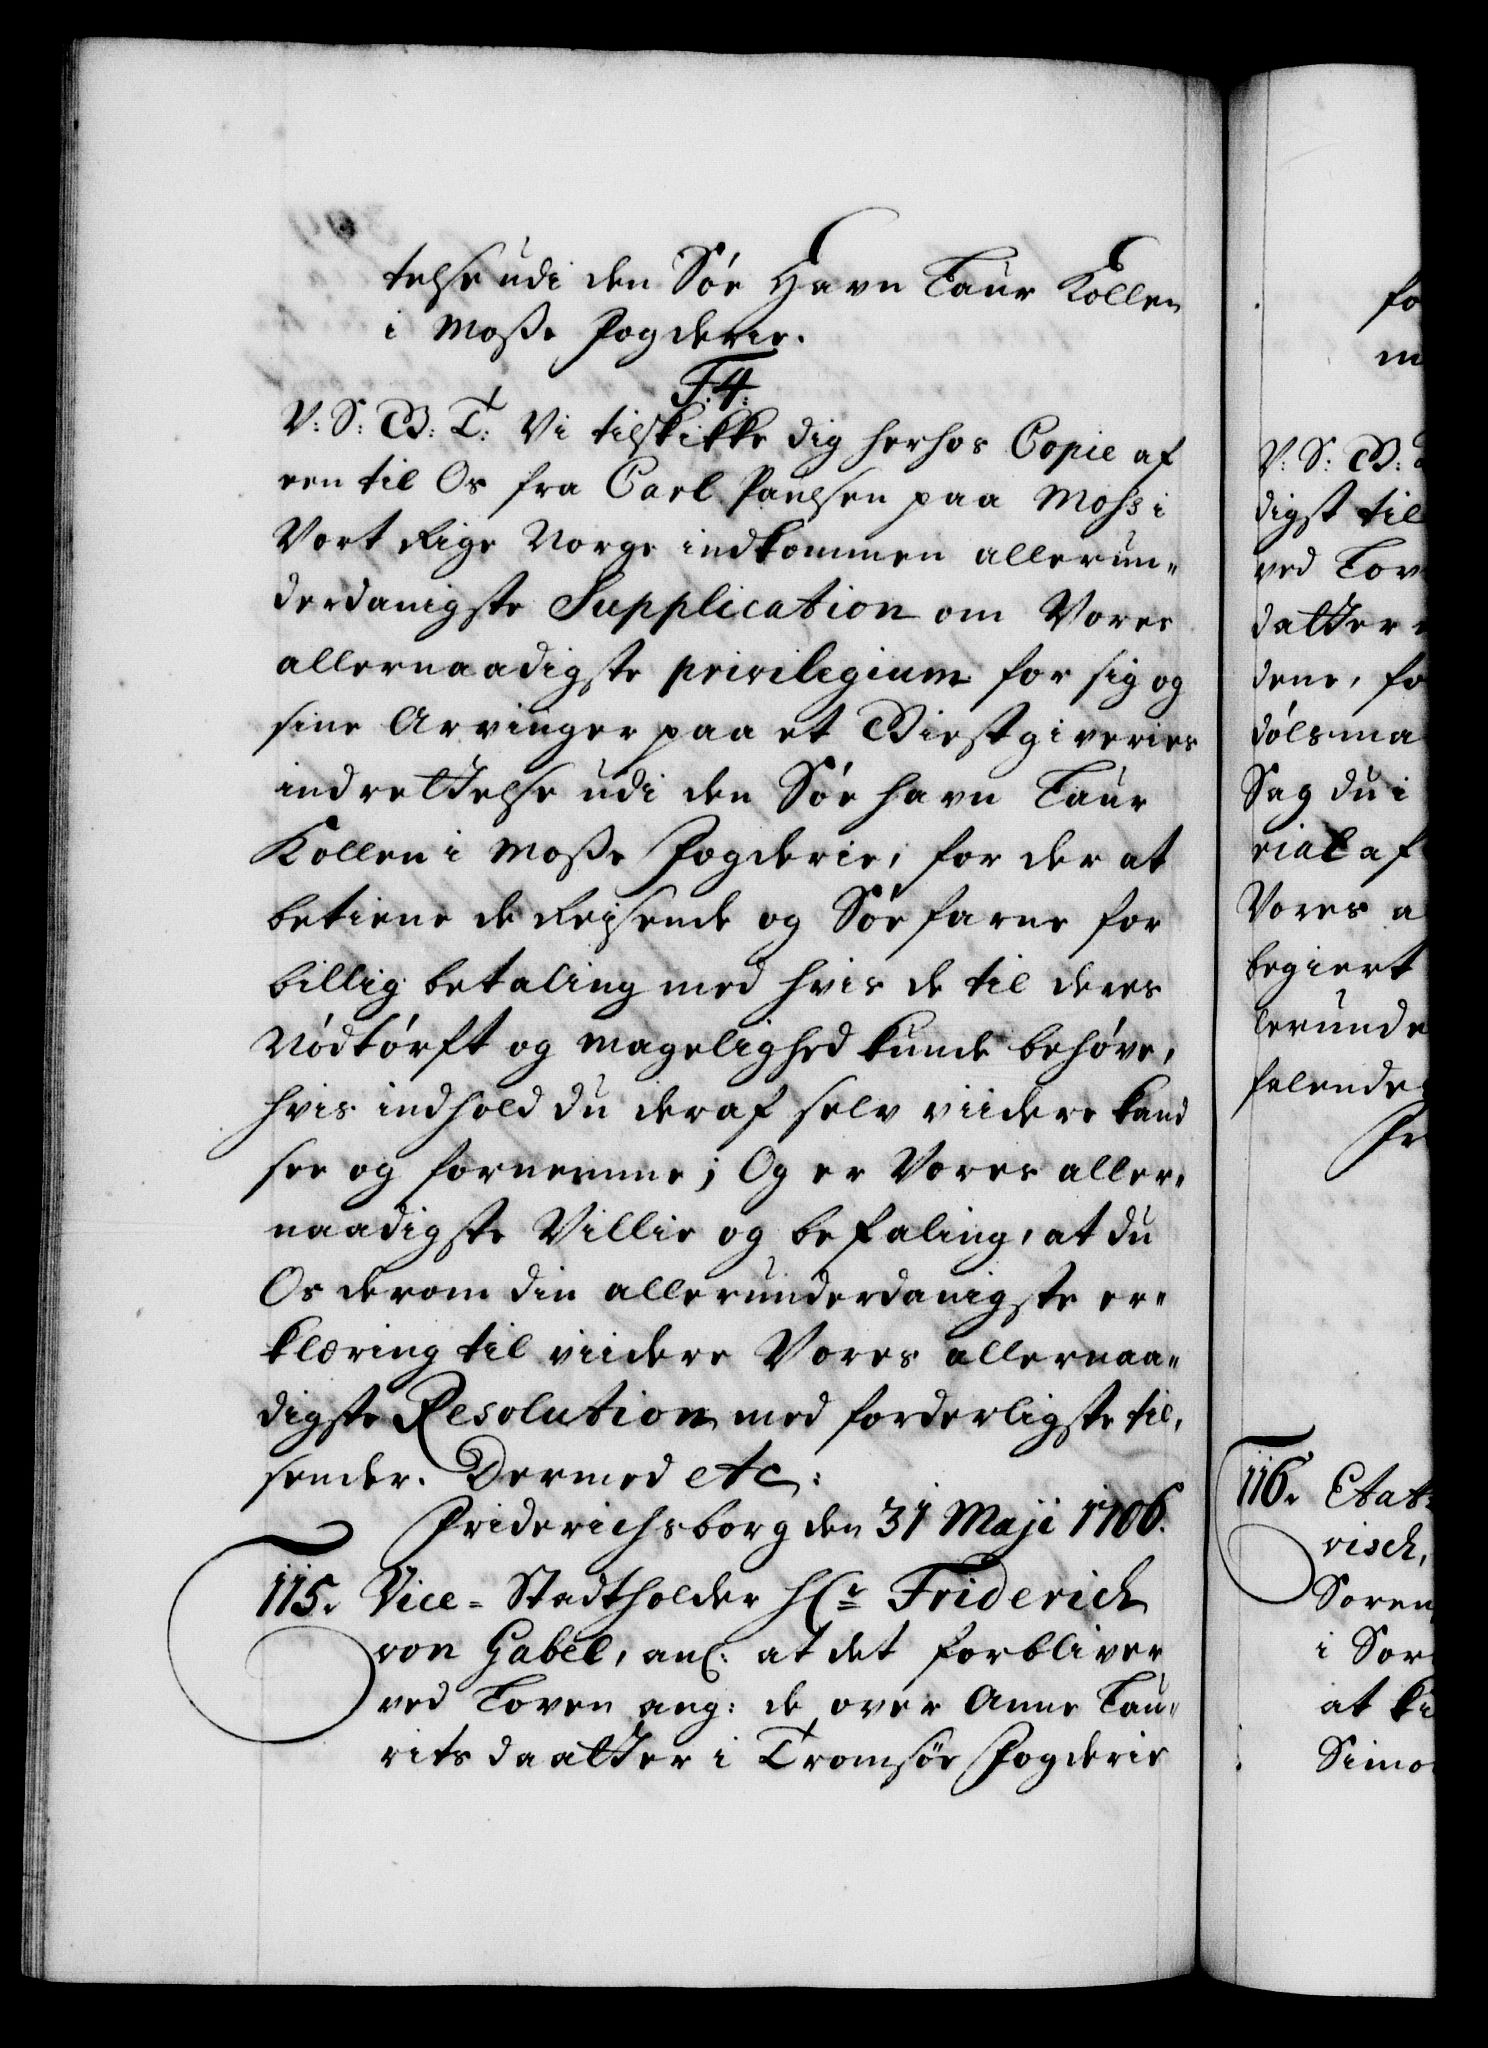 telse udi den Söe Havn Laur Kollen
i Mosse Fogderie.
F:4:
V: S: G: T: Vi tilskikke dig herhos Copie af
een til Os fra Carl Paulsen paa Moss i
Vort Rige Norge indkommen allerun-
derdanigste Supplication om Vores
allernaadigste privilegium for sig og
sine Arvinger paa et Giestgiveries
indrettelse udi den Söe havn Laur
Kollen i Mosse Fogderie, for der at
betiene de Reisende og Söefarne for
billig betaling med hvis de til deres
Nödtörft og Magelighed kunde behöve,
hvis indhold du deraf selv viidere kand
see og fornemme; Og er Vores aller-
naadigste Villie og befaling, at du
Os derom din allerunderdanigste er-
klæring til viidere Vores allernaa-
digste Resolution med forderligste til-
sender. Dermed etc:
Friderichsborg den 31 Maji 1706.
115. Vice-Stadtholder Hr Friderich
von Gabel, anl: at det forbliver
ved Loven ang: de over Anne Lau-
rits daatter i Tromsöe Fogderie
fo
m
V: S: G:
digst til
ved Lov
datter
dene, fo
dölsma
Sag du i
rial af
Vores a
begiert
lerunde
felende
Fr
116. Etats
risch,
Soren
i Sor
at ki
Simo